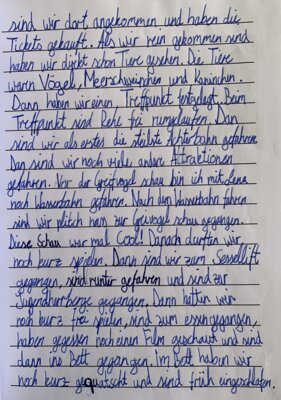 sind wir dort angekommen und haben die
Tickets gekauft. Als wir rein gekommen sind
haben wir direkt schon Tiere gesehen. Die Tiere
warn Vögel, Meerschweinen und kaninchen.
Dann haben wir einen, Treffpunkt festgelegt. Beim
Treffpunkt sind Rehe frei rumgelaufen. Dan
sind wir als erstes die steilste Achterbahn gefahren
Dan sind wir noch viele andere Attraktionen
gefahren. Vor der Greifvogel schau bin ich mit Lena
noch Wasserbahn gefahren. Nach den Wasserbahn fahren
sind wir plitch nass zur Greivogel schau gegangen.
Diese Schau war mal Cool! Danach durften wir
noch kurz spielen. Dann sind wir zum Sessellift
gegangen, sind runter gefahren und sind zur
Jugendherberge gegangen. Dann hatten wir
noch kurz frei spielen, sind zum essen gegangen,
haben gegessen noch einen Film geschaut und sind
dann ins Bett gegangen. Im Bett haben wir
noch kurz gequatscht und sind früh eingeschlafen.